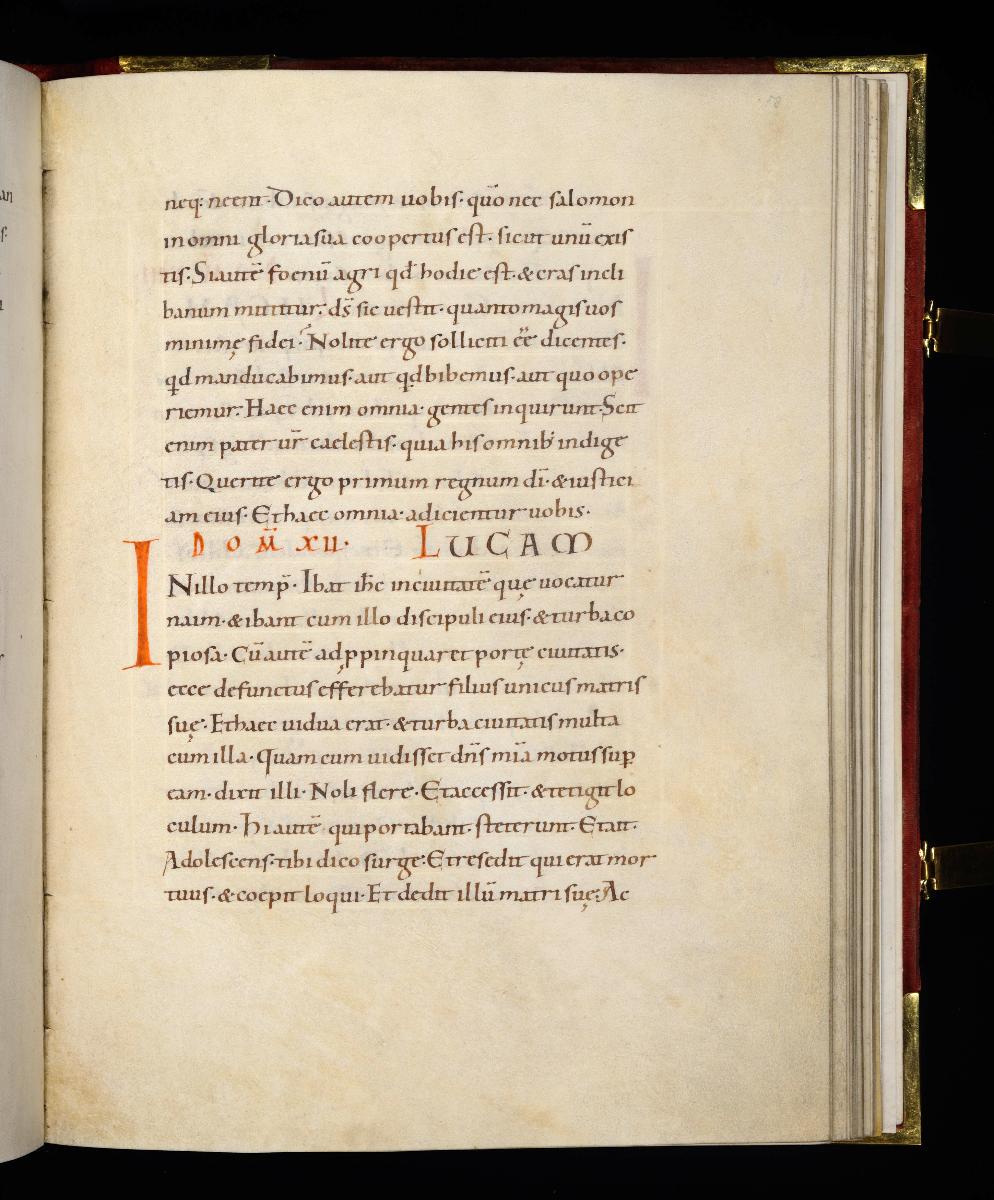 58
neq: neent. Dico autem uobis. quō nec salomon
in omni gloria sua coopertus est. sicut unū exis
tis. Si autē foenū agri qđ hodie est. & cras in cli
banum mittitur. dš sic uestit. quanto magis uos
minimę fidei. Nolite ergo solliciti eē dicentes.
qđ manducabimus. aut qđ bibemus. aut quo ope
riemur. Haec enim omnia gentes inquirunt. Scit
enim pater ur̄ caelestis. quia his omnib; indige
tis. Querite ergo primum regnum dī. & iustici
am eius. Et haec omnia adicientur uobis.
DOM̄ XII. LUCAM
INillo temp̄. Ibat ihc in ciuitatē quę uocatur
naim. & ibant cum illo discipuli eius. & turba co
piosa. Cū autē adp̱pinquaret portę ciuitatis.
ecce defunctus efferebatur filius unicus matris
suę. Et haec uidua erat. & turba ciuitatis multa
cum illa. Quam cum uidisset dn̄s mīa motus sup̄
eam. dixit illi. Noli flere. Et accessit. & tetigit lo
culum. Hi autē qui portabant. steterunt. Et ait.
Adolescens. tibi dico surge. Et resedit qui erat mor
tuus. & coepit loqui. Et dedit illū matri suę. Ac